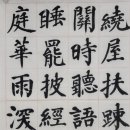 繞屋扶踈
關時聽語
睡罷披經
庭華雨深